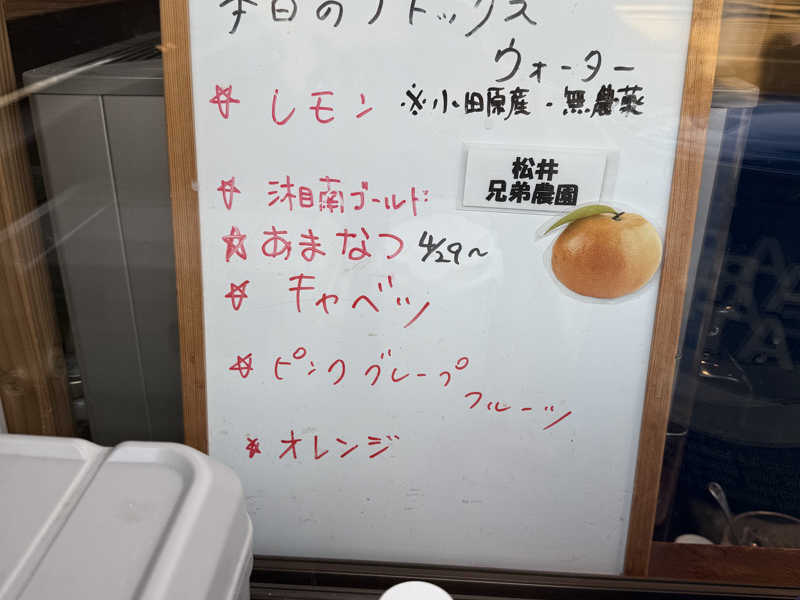 本日のデトックス
ウォーター
☆ レモン ※小田原産・無農薬
松井
兄弟農園
☆ 湘南ゴールド
☆ あまなつ 4/29〜
☆ キャベツ
☆ ピンクグレープ
フルーツ
☆ オレンジ